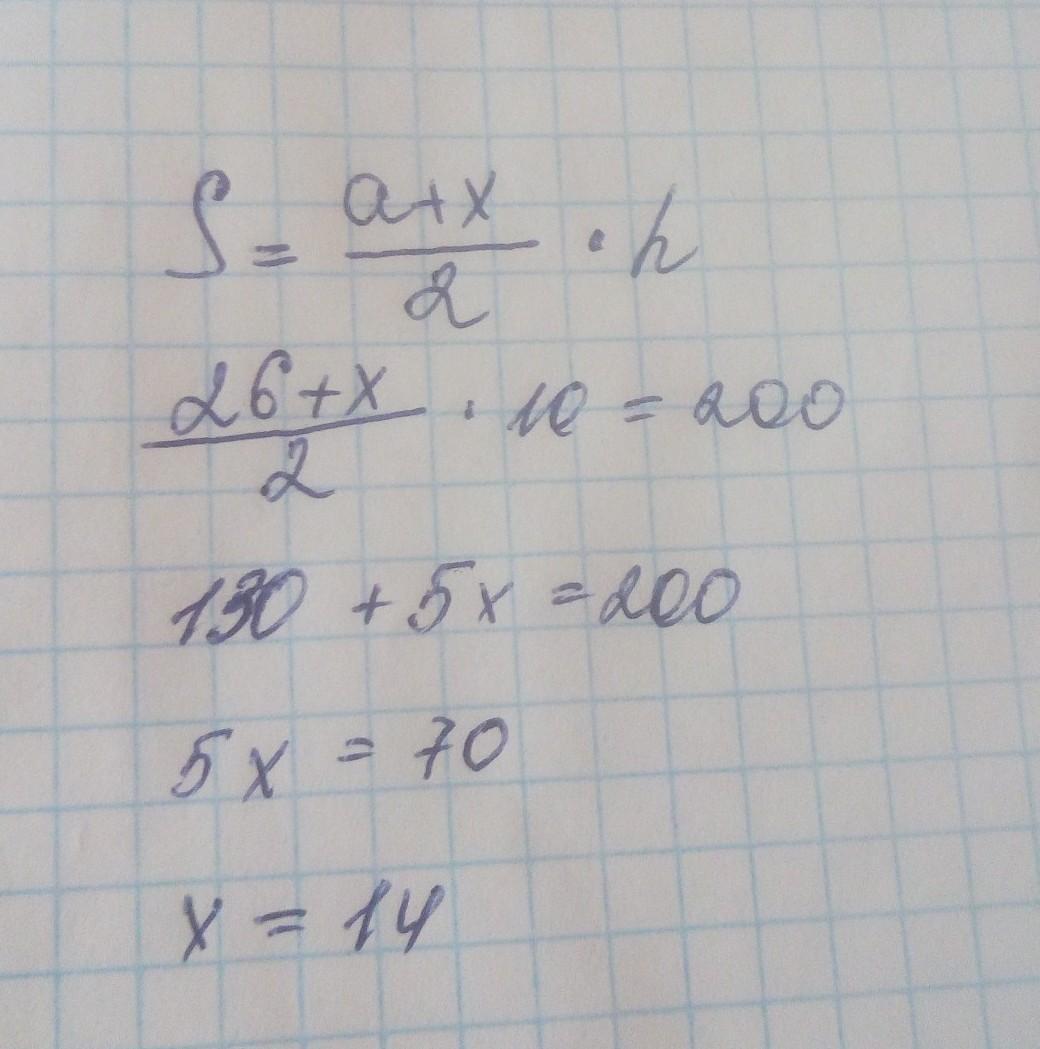 S = (a+x)/2 · h
(26+x)/2 · 10 = 200
130 + 5x = 200
5x = 70
x = 14